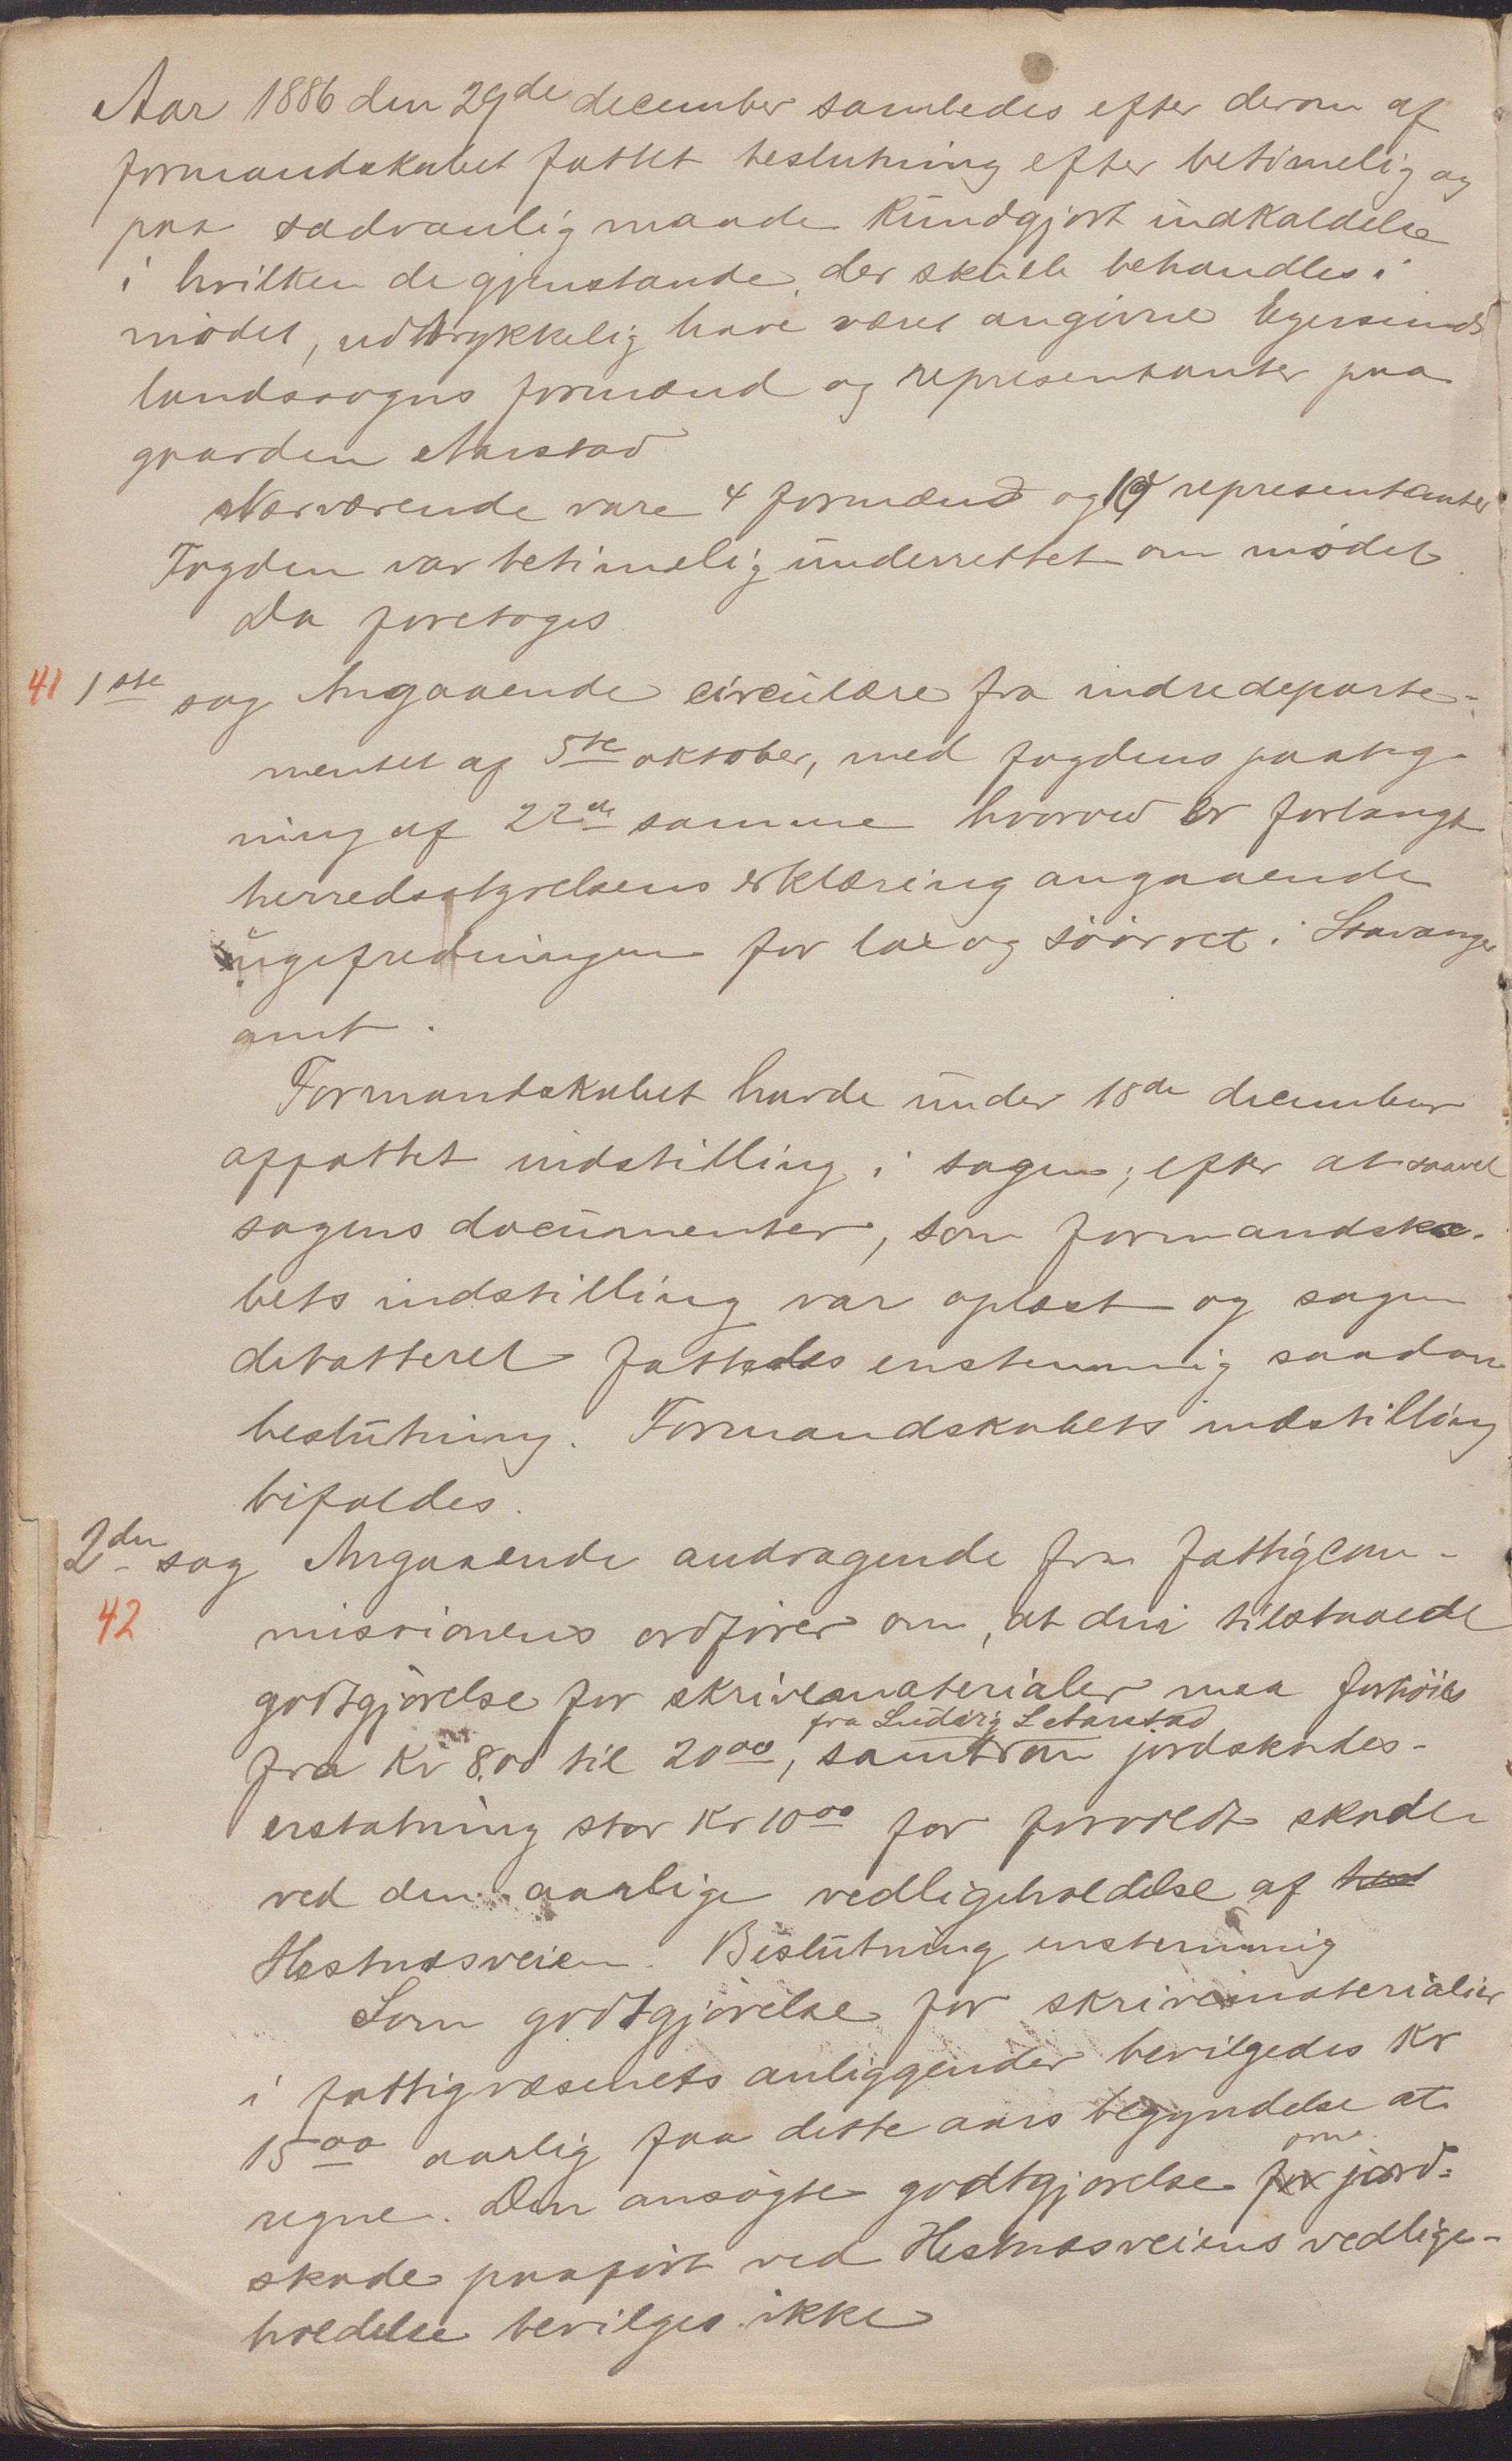 Aar 1886 den 29de december samledes efter derom af
formandskabet fattet beslutning efter betimelig og
paa sædvanlig maade kundgjort indkaldelse
i hvilken de gjenstande, der skulle behandles i
mødet, udtrykkelig have været angivne Egersunds
landsogns formænd og repræsentanter paa
gaarden Aarstad
Nærværende vare 4 formænd og representanter
Fogden var betimelig underrettet om mødet
Da foretoges
41 1ste sag Angaaende circulære fra indredeparte-
mentet af 5te oktober, med fogdens paateg-
ning af 22de samme hvorved er forlangt
herredsstyrelsens erklæring angaaende
ugefredningen for lax og søørret i Stavanger
amt.
Formandskabet havde under 18de december
affattet indstilling i sagen; efter at saavel
sagens documenter, som formandska-
bets indstilling var oplæst og sagen
debatteret fattedes enstemmig saadan
beslutning. Formandskabets indstilling
bifaldes.
2den sag Angaaende andragende fra fattigcom-
42 missionens ordfører om, at den tilstaaede
godtgjørelse for skrivematerialer maa forhøies
fra Ludvig L Aarstad
fra Kr 8.00 til 20 00, samt om jordskades-
erstatning stor Kr 10 00 for forvoldt skade
ved den aarlige vedligeholdelse af
Hestnæsveien. Beslutning enstemmig
Som godtgjørelse for skrivematerialier
i fattigvæsenets anliggender bevilgedes Kr
15 00 aarlig fra dette aars begyndelse at
om
regne. Den ansøgte godtgjørelse for jord-
skade paaført ved Hestnæsveiens vedlige-
holdelse bevilges ikke